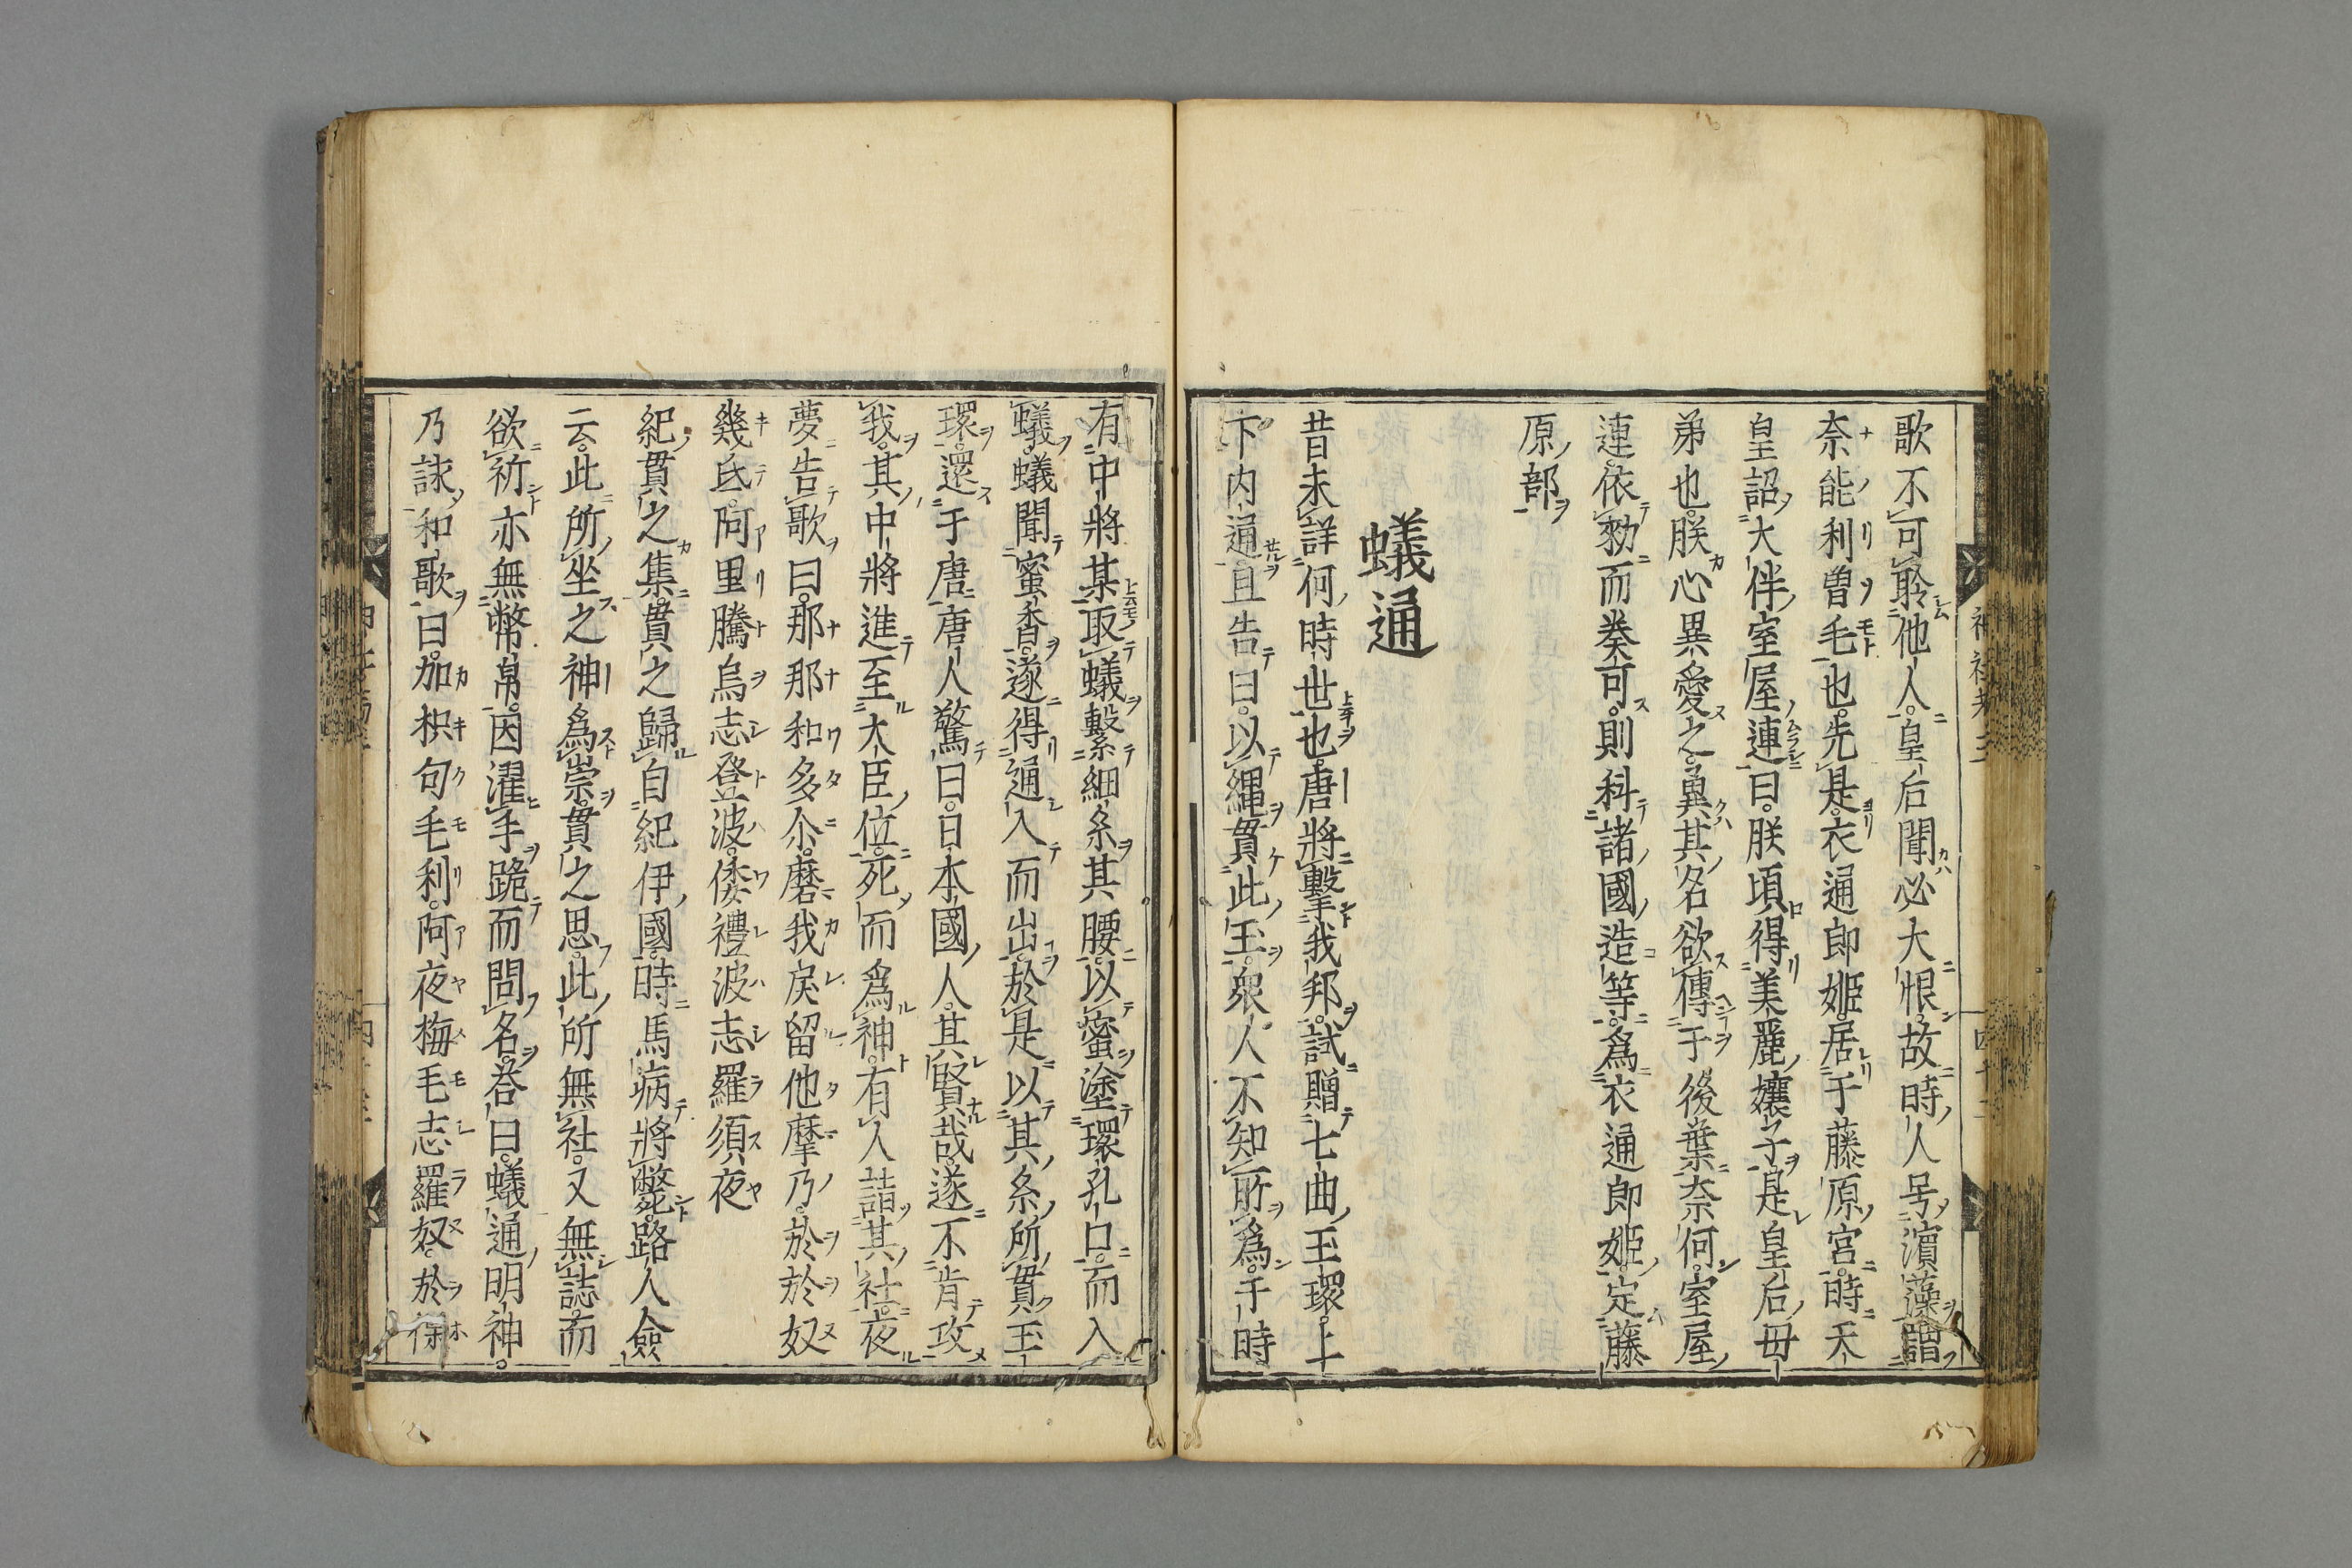 歌不可聆他人皇后聞必大恨故時人号濱藻謂
奈能利曽毛也先是衣通郎姫居于藤原宮時天
皇詔大伴室屋連曰朕頃得美麗孃子是皇后母
弟也朕心異愛之冀其名欲傳于後葉奈何室屋
連依勅而奏可則科諸國造等為衣通郎姫定藤
原部
蟻通
昔未詳何時世也唐將擊我邦試贈七曲玉環上
下内通且告曰以縄貫此玉衆人不知所為于時
有中將某取蟻繫細糸其腰以蜜塗環孔口而入
蟻蟻聞蜜香遂得通入而出於是以其糸所貫玉
環還于唐唐人驚曰日本國人其賢哉遂不肯攻
我其中將進至大臣位死而為神有人詣其社夜
夢告歌曰那那和多尒磨我戾留他摩乃於於奴
幾氐阿里騰烏志登波倭禮波志羅須夜
紀貫之集貫之歸自紀伊國時馬病將斃路人僉
云此所坐之神為崇貫之思此所無社又無誌而
欲祈亦無幣帛因濯手跪而問名荅曰蟻通明神
乃詠和歌曰加枳句毛利阿夜梅毛志羅奴於保